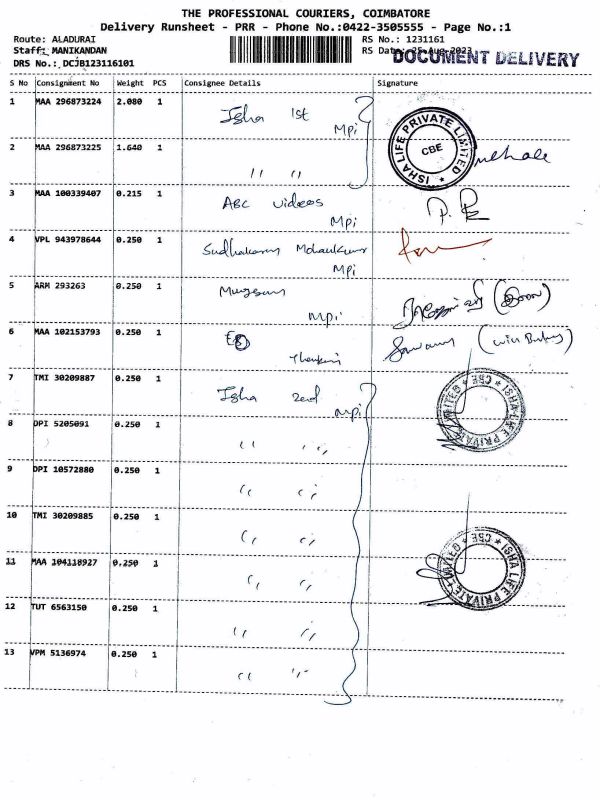 THE PROFESSIONAL COURIERS, COIMBATORE
Delivery Runsheet - PRR - Phone No.:0422-3505555 - Page No.:1
Route: ALADURAI RS No.: 1231161
Staff: MANIKANDAN RS Date: 25-Aug-2023
DOCUMENT DELIVERY
DRS No.: DCJB123116101
S No Consignment No Weight PCS Consignee Details Signature
1 MAA 296873224 2.080 1 Isha 1st
Mpi
ISHA LIFE PRIVATE LIMITED
CBE
2 MAA 296873225 1.640 1 〃 〃
3 MAA 100339407 0.215 1 ABC videos
Mpi
4 VPL 943978644 0.250 1 Sudhakaran Mohankumar
Mpi
5 ARM 293263 0.250 1 Murugesan
Mpi
6 MAA 102153793 0.250 1 EB
7 TMI 30209887 0.250 1 Isha 2nd
Mpi
ISHA LIFE PRIVATE LIMITED * CBE *
8 DPI 5205091 0.250 1 〃 〃
9 DPI 10572880 0.250 1 〃 〃
10 TMI 30209885 0.250 1 〃 〃
ISHA LIFE PRIVATE LIMITED * CBE *
11 MAA 104118927 0.250 1 〃 〃
12 TUT 6563150 0.250 1 〃 〃
13 VPM 5136974 0.250 1 〃 〃